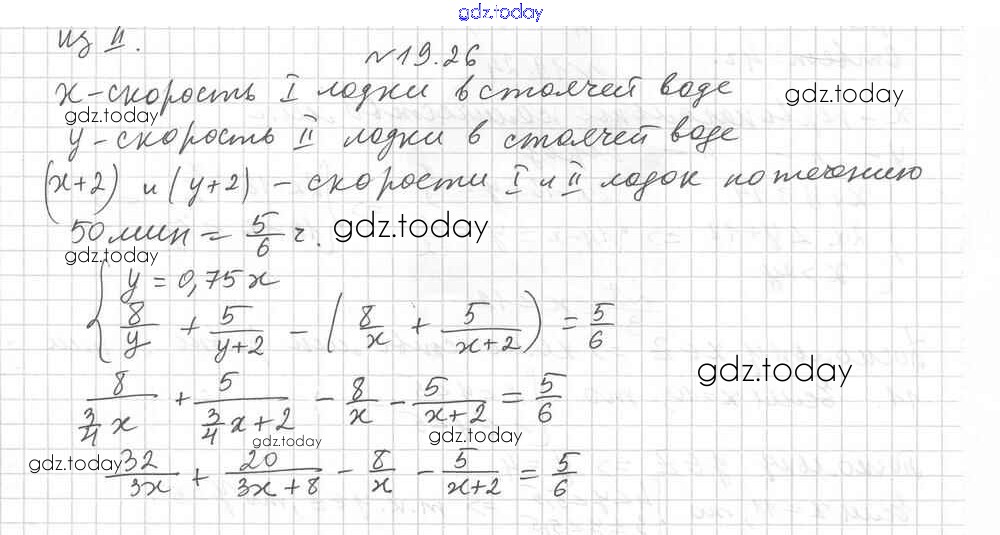 gdz.today
из II.
№19.26
x - скорость I лодки в стоячей воде
gdz.today
gdz.today
y - скорость II лодки в стоячей воде
(x+2) и (y+2) - скорости I и II лодок по течению
50 мин = 5/6 ч.
gdz.today
gdz.today
{ y = 0,75x
8/y + 5/(y+2) - (8/x + 5/(x+2)) = 5/6
gdz.today
8/(3/4 x) + 5/(3/4 x + 2) - 8/x - 5/(x+2) = 5/6
gdz.today
gdz.today
gdz.today
32/3x + 20/(3x+8) - 8/x - 5/(x+2) = 5/6